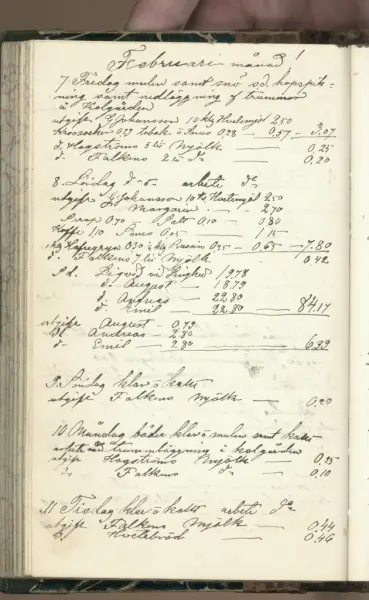 Februari månad!
7 Fredag mulen samt snö so. hopspik-
ning samt nidläggning af trummor
å Kolgården
utgift J Johansson 10 kg Hvetemjöl 2,50
0,29 Tobak o Snus 0,28 — 0,57 — 3,07
d. Hagströms 5 lit Mjölk — 0,25
d. Falkens 2 lit do — 0,20
8. Lördag d-o- arbete do
utgift J Johansson 10 kg Hvetemjöl 2,50
Margarin — 2,70
Sirap 0,70 — Salt 0,10 — 0,80
Kaffe 1,10 Snus 0,05 — 1,15
kg Hafregryn 0,30 ½ kg Russin 0,35 — 0,65 — 7,80
d. Falkens 7 lit Mjölk — 0,42
S.d. Ligvid ved 19,78
d. August — 18,79
d. Andreas — 22,80
d. Emil — 22,80 — 84,17
utgift August — 0,79
d. Andreas — 2,80
d- Emil — 2,80 — 6,39
9 Söndag klar o kallt
utgift Falkens Mjölk — 0,20
10 Måndag både klar o mulen samt kallt
arbete med trumläggning i kolgården
utgift Hagströms Mjölk — 0,25
d. Falkens do — 0,10
11 Tisdag klar o kallt arbete do
utgift Falkens Mjölk — 0,44
d. Hvetebröd — 0,46